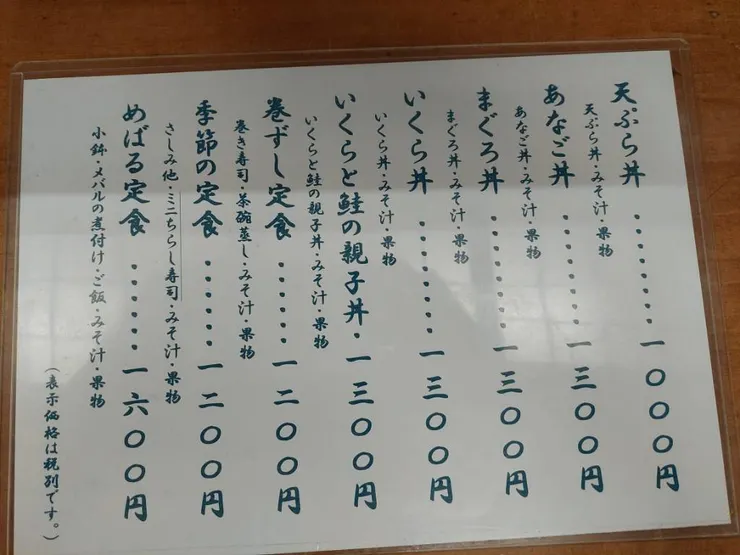 天ぷら丼・・・・・・・・・一〇〇〇円
天ぷら丼・みそ汁・果物
あなご丼・・・・・・・・一三〇〇円
あなご丼・みそ汁・果物
まぐろ丼・・・・・・・・一三〇〇円
まぐろ丼・みそ汁・果物
いくら丼・・・・・・・・一三〇〇円
いくら丼・みそ汁・果物
いくらと鮭の親子丼・一三〇〇円
いくらと鮭の親子丼・みそ汁・果物
巻ずし定食・・・・・・一二〇〇円
巻き寿司・茶碗蒸し・みそ汁・果物
季節の定食・・・・・・一二〇〇円
さしみ他・ミニちらし寿司・みそ汁・果物
めばる定食・・・・・・一六〇〇円
小鉢・メバルの煮付け・ご飯・みそ汁・果物
（表示価格は税別です。）